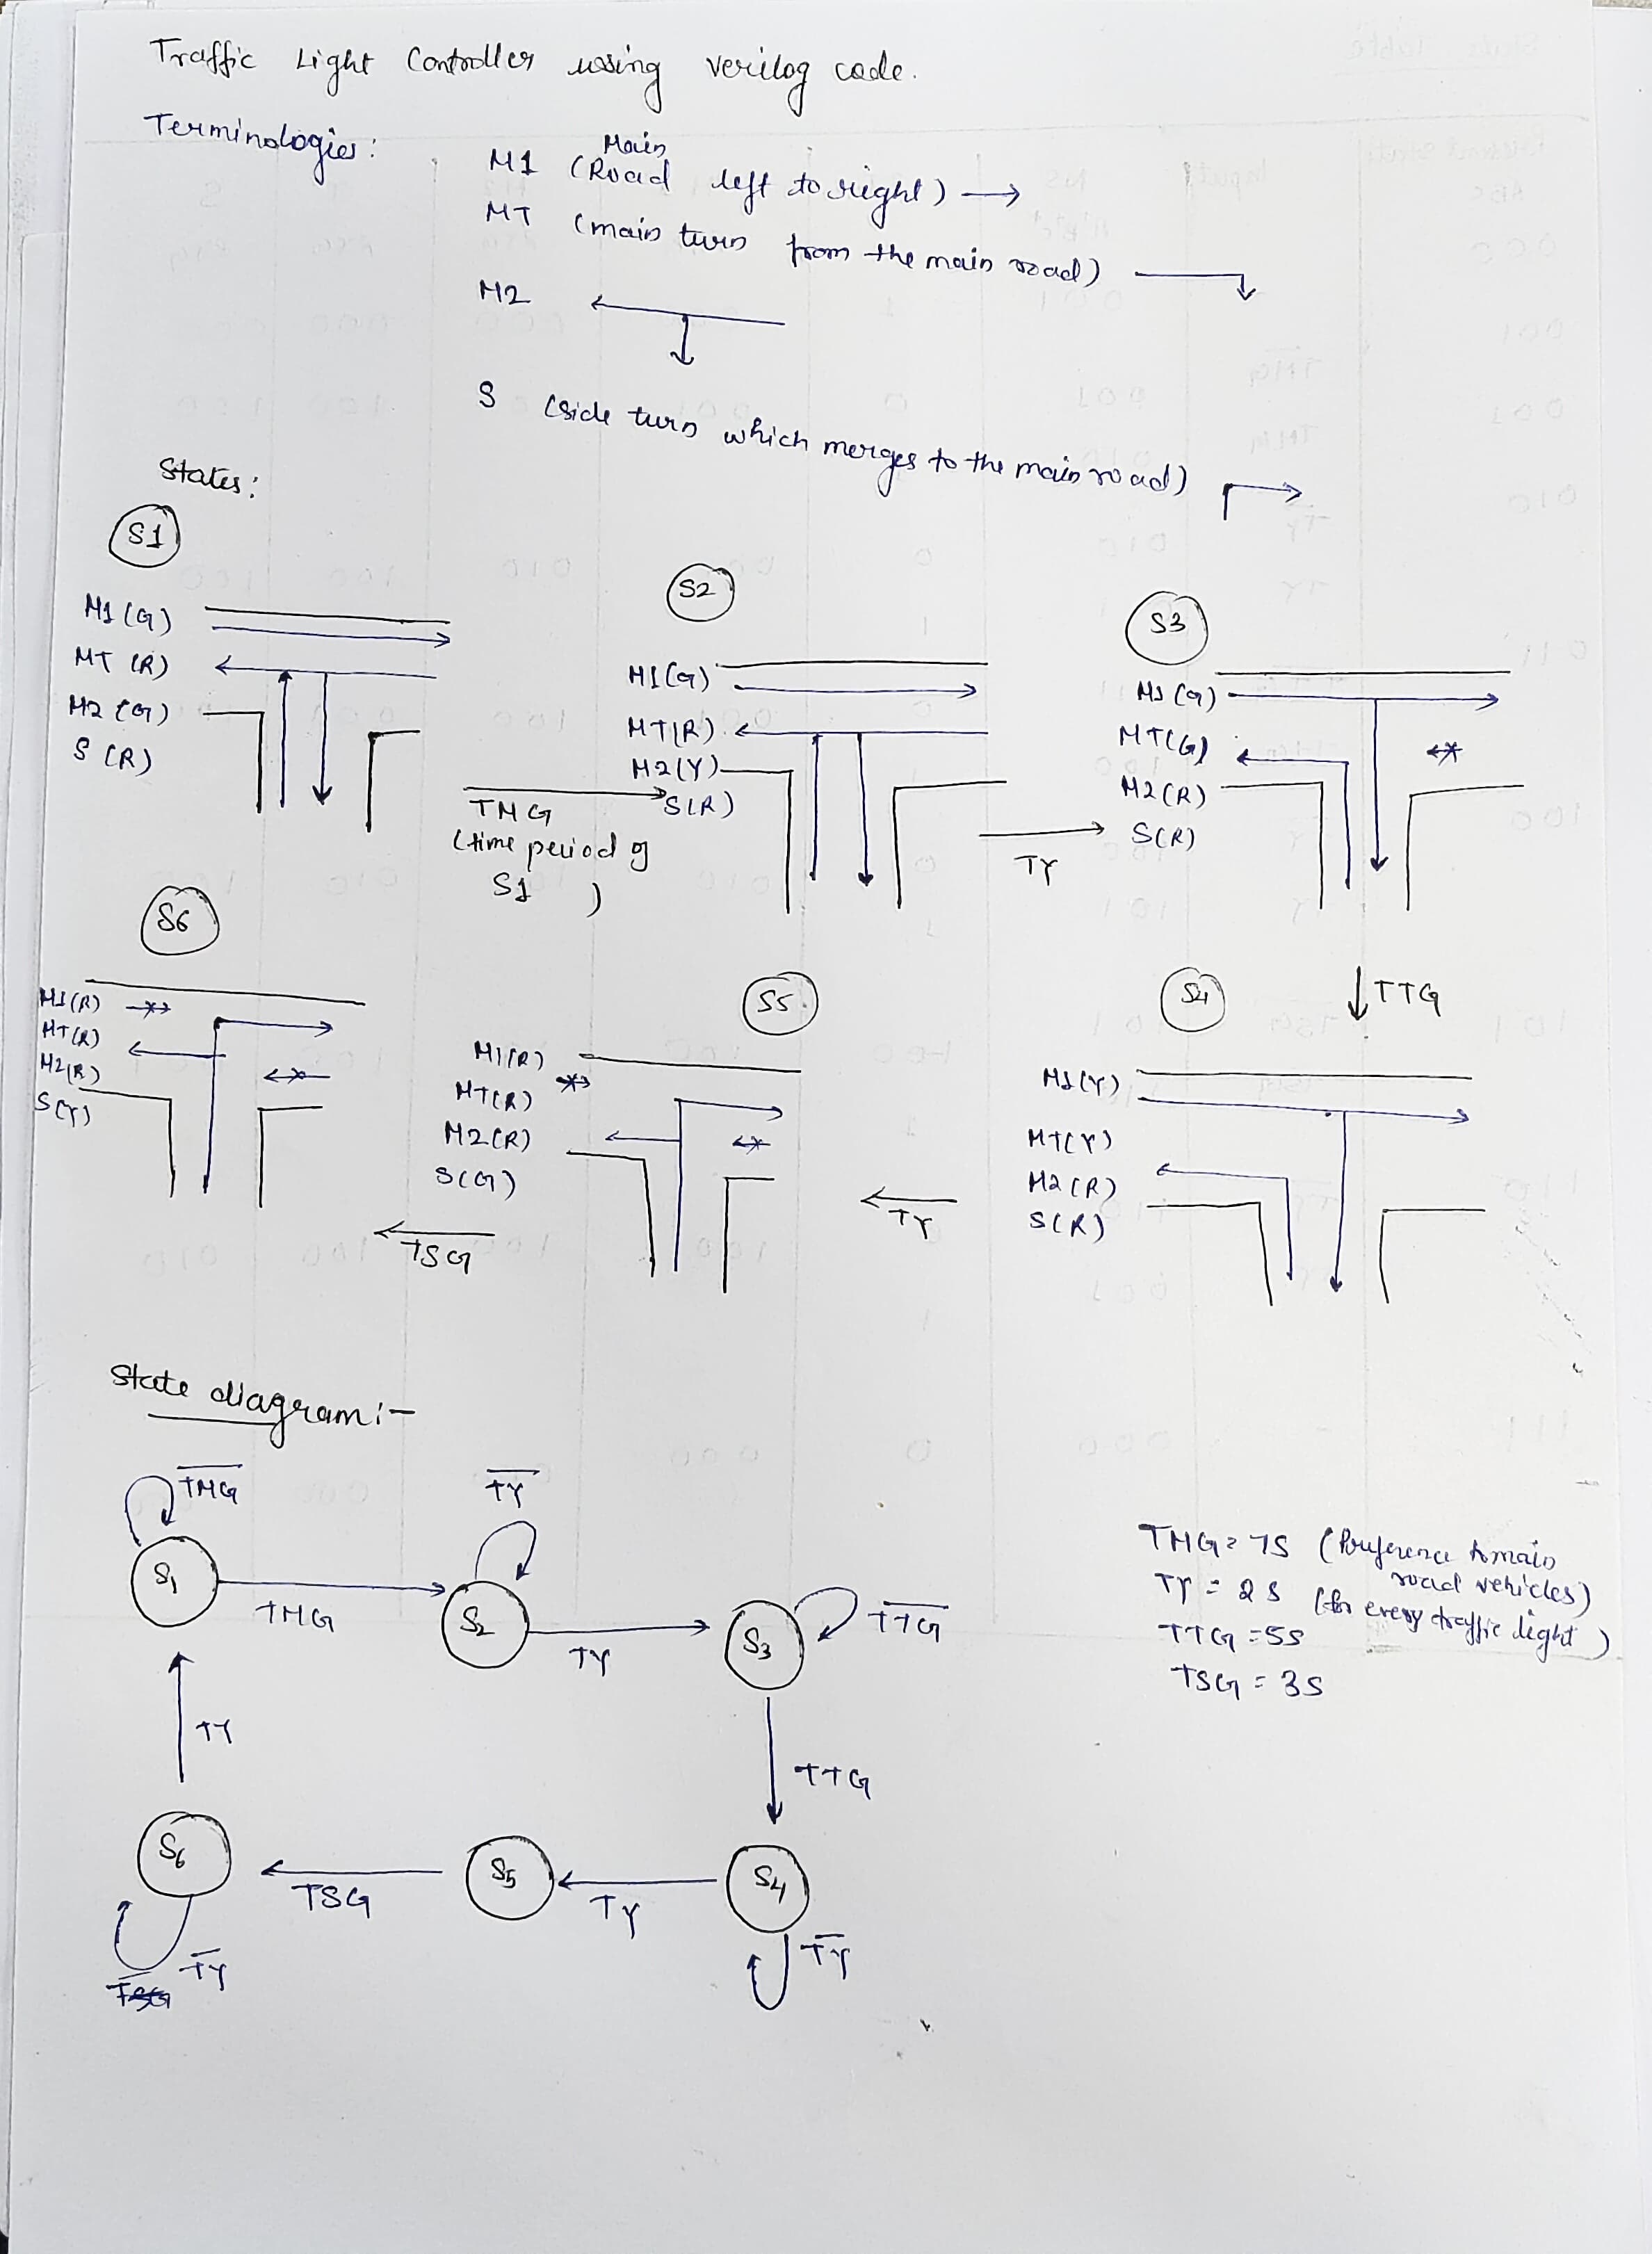 Traffic Light Controller using verilog code.
Terminologies:
M1 (Main Road left to right) →
MT (main turn from the main road)
M2
S (side turn which merges to the main road)
States:
S1
M1 (G)
MT (R)
M2 (G)
S (R)
TMG
(time period of
S1 )
S2
M1(G)
MT(R)
M2(Y)
S(R)
TY
S3
M1 (G)
MT(G)
M2(R)
S(R)
TTG
S4
M1(Y)
MT(Y)
M2(R)
S(R)
TY
S5
M1(R)
MT(R)
M2(R)
S(G)
TSG
S6
M1(R)
MT(R)
M2(R)
S(Y)
State diagram:-
TMG
TY
S1
TMG
S2
TY
S3
TTG
TTG
S4
TY
TY
S5
TSG
S6
TY
TY
TMG = 7S (Preference to main
road vehicles)
TY = 2S (for every traffic light)
TTG = 5S
TSG = 3S